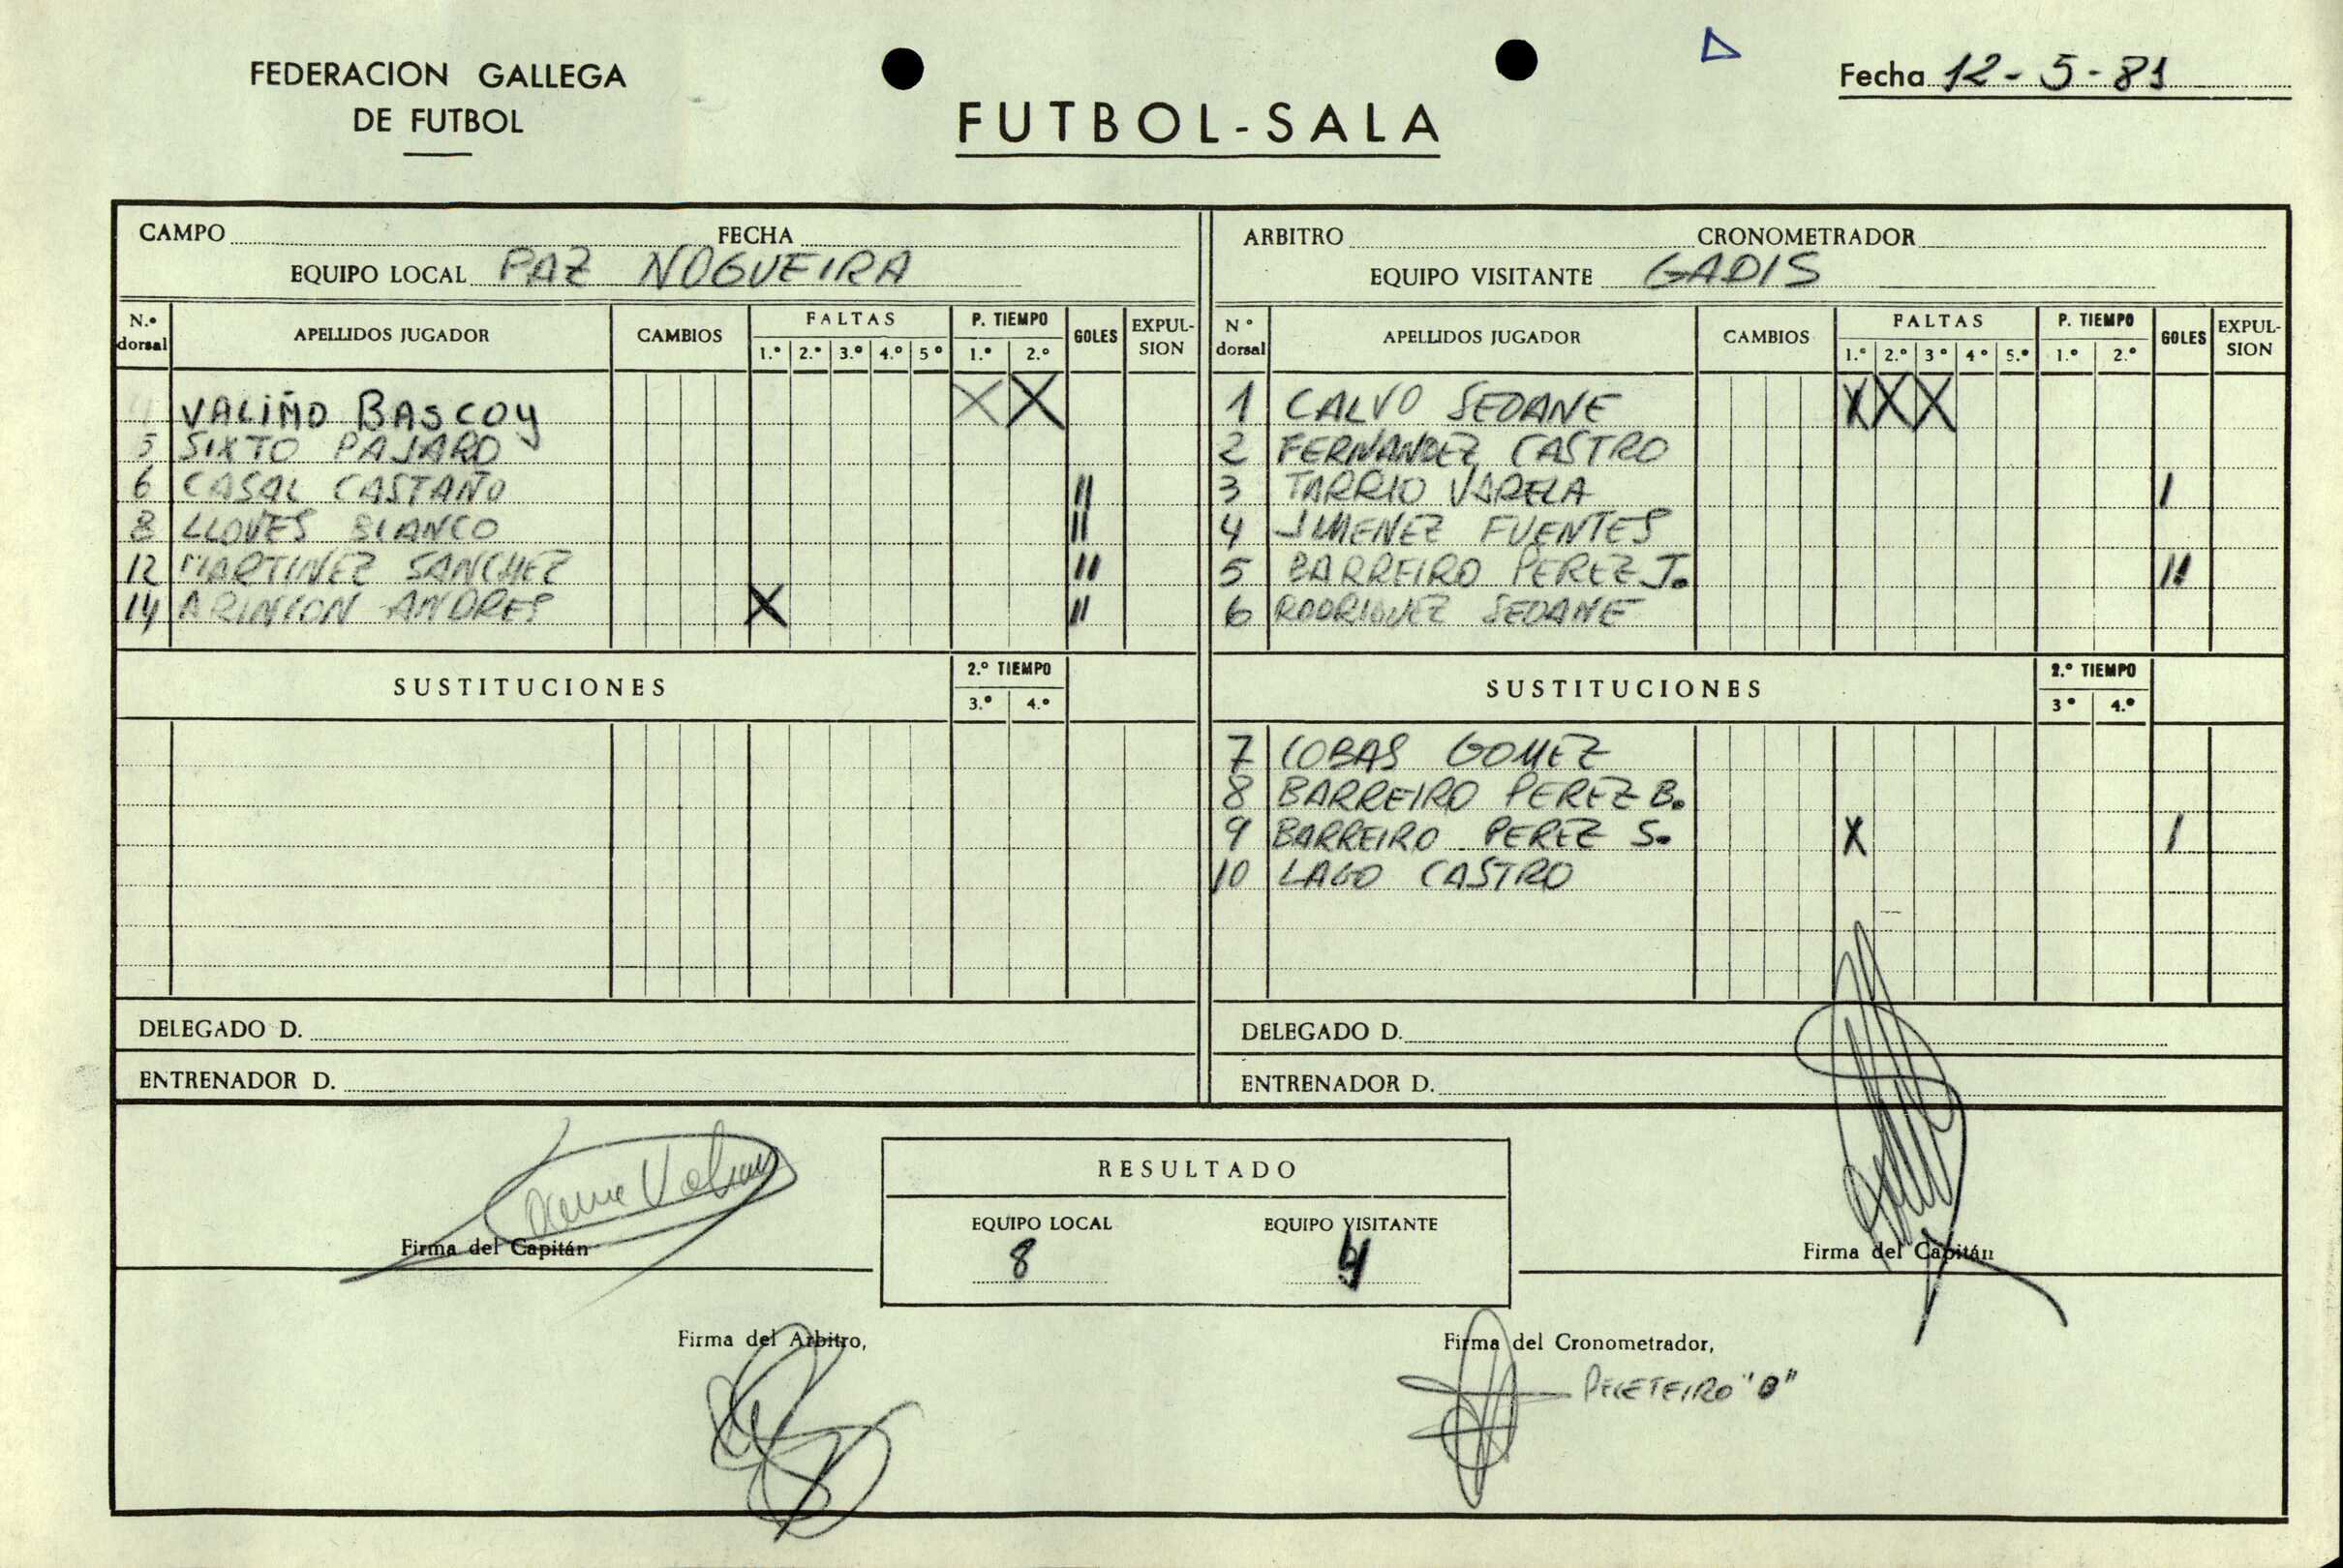 FEDERACION GALLEGA
DE FUTBOL
FUTBOL-SALA
Fecha 12-5-81
CAMPO FECHA
EQUIPO LOCAL PAZ NOGUEIRA
N.º dorsal APELLIDOS JUGADOR CAMBIOS FALTAS P. TIEMPO GOLES EXPULSION
1.º 2.º 3.º 4.º 5º 1.º 2.º
VALIÑO BASCOY X X
5 SIXTO PAJARO
6 CASAL CASTAÑO II
8 LLOVES BLANCO II
12 MARTINEZ SANCHEZ II
14 ARINCON ANDRES X II
SUSTITUCIONES 2.º TIEMPO
3.º 4.º
DELEGADO D.
ENTRENADOR D.
ARBITRO CRONOMETRADOR
EQUIPO VISITANTE GADIS
Nº dorsal APELLIDOS JUGADOR CAMBIOS FALTAS P. TIEMPO GOLES EXPULSION
1.º 2.º 3º 4º 5.º 1.º 2.º
1 CALVO SEOANE X X X
2 FERNANDEZ CASTRO
3 TARRIO VARELA I
4 JIMENEZ FUENTES
5 BARREIRO PEREZ J. II
6 RODRIGUEZ SEOANE
SUSTITUCIONES 2.º TIEMPO
3º 4.º
7 COBAS GOMEZ
8 BARREIRO PEREZ B.
9 BARREIRO PEREZ S. X I
10 LAGO CASTRO
DELEGADO D.
ENTRENADOR D.
RESULTADO
EQUIPO LOCAL EQUIPO VISITANTE
8 4
Firma del Capitán
Firma del Capitán
Firma del Arbitro,
Firma del Cronometrador,
PELETEIRO "B"